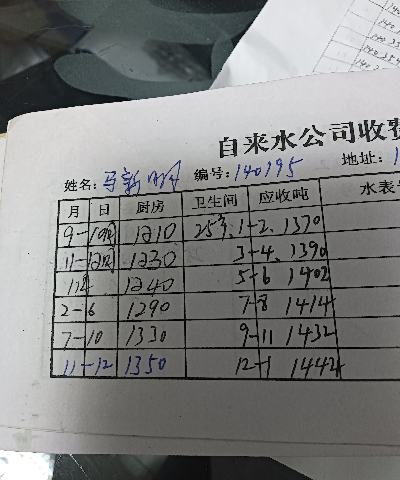 自来水公司收费
姓名: 马新 编号: 140195 地址: 1
月 日 厨房 卫生间 应收吨 水表
9-10月 1210 253. 1-2. 1370
11-12月 1230 3-4. 1390
1240 5-6 1402
2-6 1290 7-8 1414
7-10 1330 9-11 1432
11-12 1350 12-1 1442